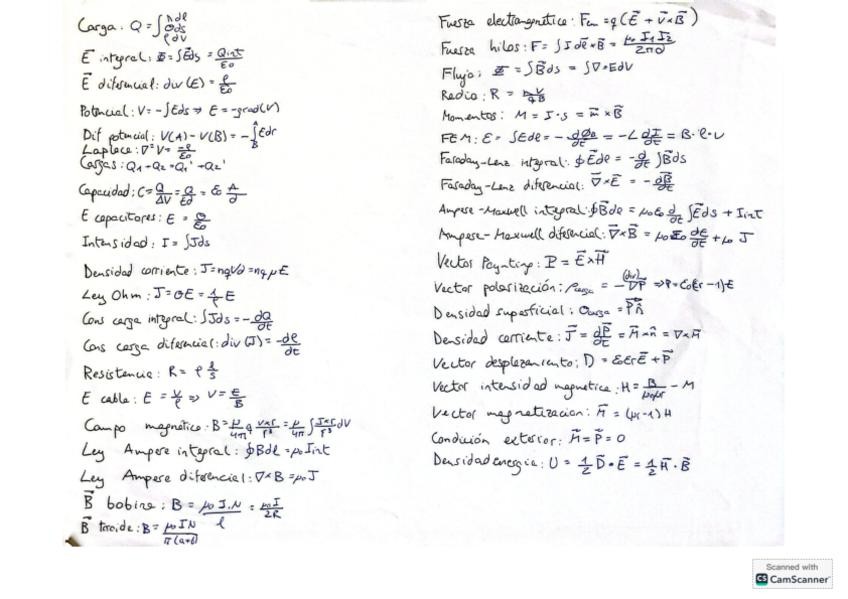 Carga: Q = ∫ λdl σds ρdV
E⃗ integral: Φ = ∫E⃗ds = Qint/ε0
E⃗ diferencial: div(E) = ρ/ε0
Potencial: V = -∫Eds ⇒ E = -grad(V)
Dif potencial: V(A) - V(B) = -∫_B^A Edr
Laplece: ∇²V = -ρ/ε0
Cargas: Q1 + Q2 = Q1' + Q2'
Capacidad: C = Q/ΔV = Q/Ed = ε0 A/d
E capacitores: E = σ/ε0
Intensidad: I = ∫Jds
Densidad corriente: J = nqVd = nqμE
Ley Ohm: J = σE = 1/ρ E
Cons carga integral: ∫Jds = -dQ/dt
Cons carga diferencial: div(J) = -dρ/dt
Resistencia: R = ρ l/s
E cable: E = V/l ⇒ V = E/B
Campo magnético: B = μ/4π q vxr/r² = μ/4π ∫ Jxr/r³ dV
Ley Ampere integral: ∮Bdl = μ0 Iint
Ley Ampere diferencial: ∇×B = μ0 J
B⃗ bobina: B = μ0 I.N/l = μ0 I/2R
B⃗ toroide: B = μ0 IN/π(a+b)
Fuerza electromagnética: Fem = q(E⃗ + v⃗×B⃗)
Fuerza hilos: F = ∫Idl⃗×B⃗ = μ0 I1 I2/2πd
Flujo: Φ = ∫B⃗ds = ∫∇·EdV
Radio: R = mV/qB
Momentos: M = I·s = m⃗×B⃗
FEM: ε = ∫Edl = -dΦB/dt = -L dI/dt = B·l·v
Faraday-Lenz integral: ∮E⃗dl = -d/dt ∫B⃗ds
Faraday-Lenz diferencial: ∇⃗×E⃗ = -dB⃗/dt
Ampere-Maxwell integral: ∮B⃗dl = μ0ε0 d/dt ∫E⃗ds + Iint
Ampere-Maxwell diferencial: ∇⃗×B⃗ = μ0ε0 dE/dt + μ0 J
Vector Poynting: P = E⃗×H⃗
Vector polarización: ρcarga = -∇P⃗ (div) ⇒ P = ε0(εr-1)·E
Densidad superficial: σcarga = P⃗n̂
Densidad corriente: J⃗ = dP⃗/dt = M⃗×n̂ = ∇×M⃗
Vector desplezamiento: D = ε0εrE⃗ + P⃗
Vector intensidad magnetica: H = B/μ0μr - M
Vector magnetizacion: M⃗ = (μr-1)H
Condición exterior: M⃗ = P⃗ = 0
Densidad energia: U = 1/2 D⃗·E⃗ = 1/2 H⃗·B⃗
Scanned with
CS CamScanner